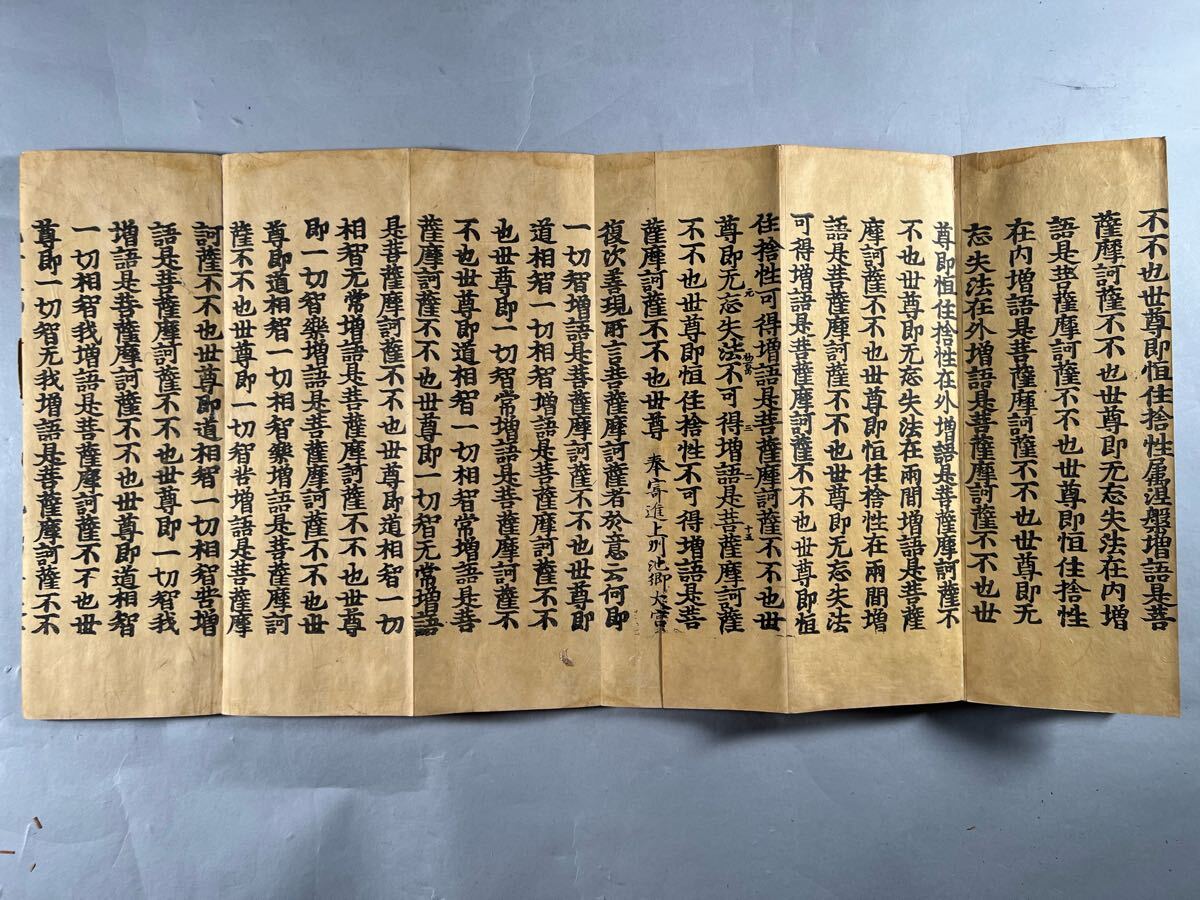 不不也世尊即恒住捨性属涅盤増語是菩
薩摩訶薩不不也世尊即无忘失法在内増
語是菩薩摩訶薩不不也世尊即恒住捨性
在内増語是菩薩摩訶薩不不也世尊即无
忘失法在外増語是菩薩摩訶薩不不也世
尊即恒住捨性在外増語是菩薩摩訶薩不
不也世尊即无忘失法在兩間増語是菩薩
摩訶薩不不也世尊即恒住捨性在兩間増
語是菩薩摩訶薩不不也世尊即无忘失法
可得増語是菩薩摩訶薩不不也世尊即恒
住捨性可得増語是菩薩摩訶薩不不也世
尊即无忘失法不可得増語是菩薩摩訶薩
元 三 二 十五
不不也世尊即恒住捨性不可得増語是菩
薩摩訶薩不不也世尊 奉寄進上州池郷大宮
復次善現所言菩薩摩訶薩者於意云何即
一切智増語是菩薩摩訶薩不不也世尊即
道相智一切相智増語是菩薩摩訶薩不不
也世尊即一切智常増語是菩薩摩訶薩不
不也世尊即道相智一切相智常増語是菩
薩摩訶薩不不也世尊即一切智无常増語
是菩薩摩訶薩不不也世尊即道相智一切
相智无常増語是菩薩摩訶薩不不也世尊
即一切智樂増語是菩薩摩訶薩不不也世
尊即道相智一切相智樂増語是菩薩摩訶
薩不不也世尊即一切智苦増語是菩薩摩
訶薩不不也世尊即道相智一切相智苦増
語是菩薩摩訶薩不不也世尊即一切智我
増語是菩薩摩訶薩不不也世尊即道相智
一切相智我増語是菩薩摩訶薩不不也世
尊即一切智无我増語是菩薩摩訶薩不不